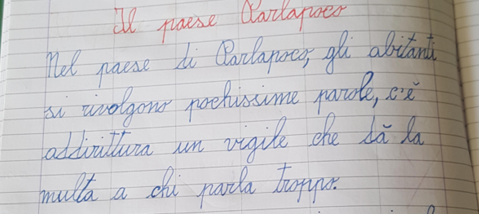 Il paese Parlapoco
Nel paese di Parlapoco, gli abitanti
si rivolgono pochissime parole, c'è
addirittura un vigile che dà la
multa a chi parla troppo.